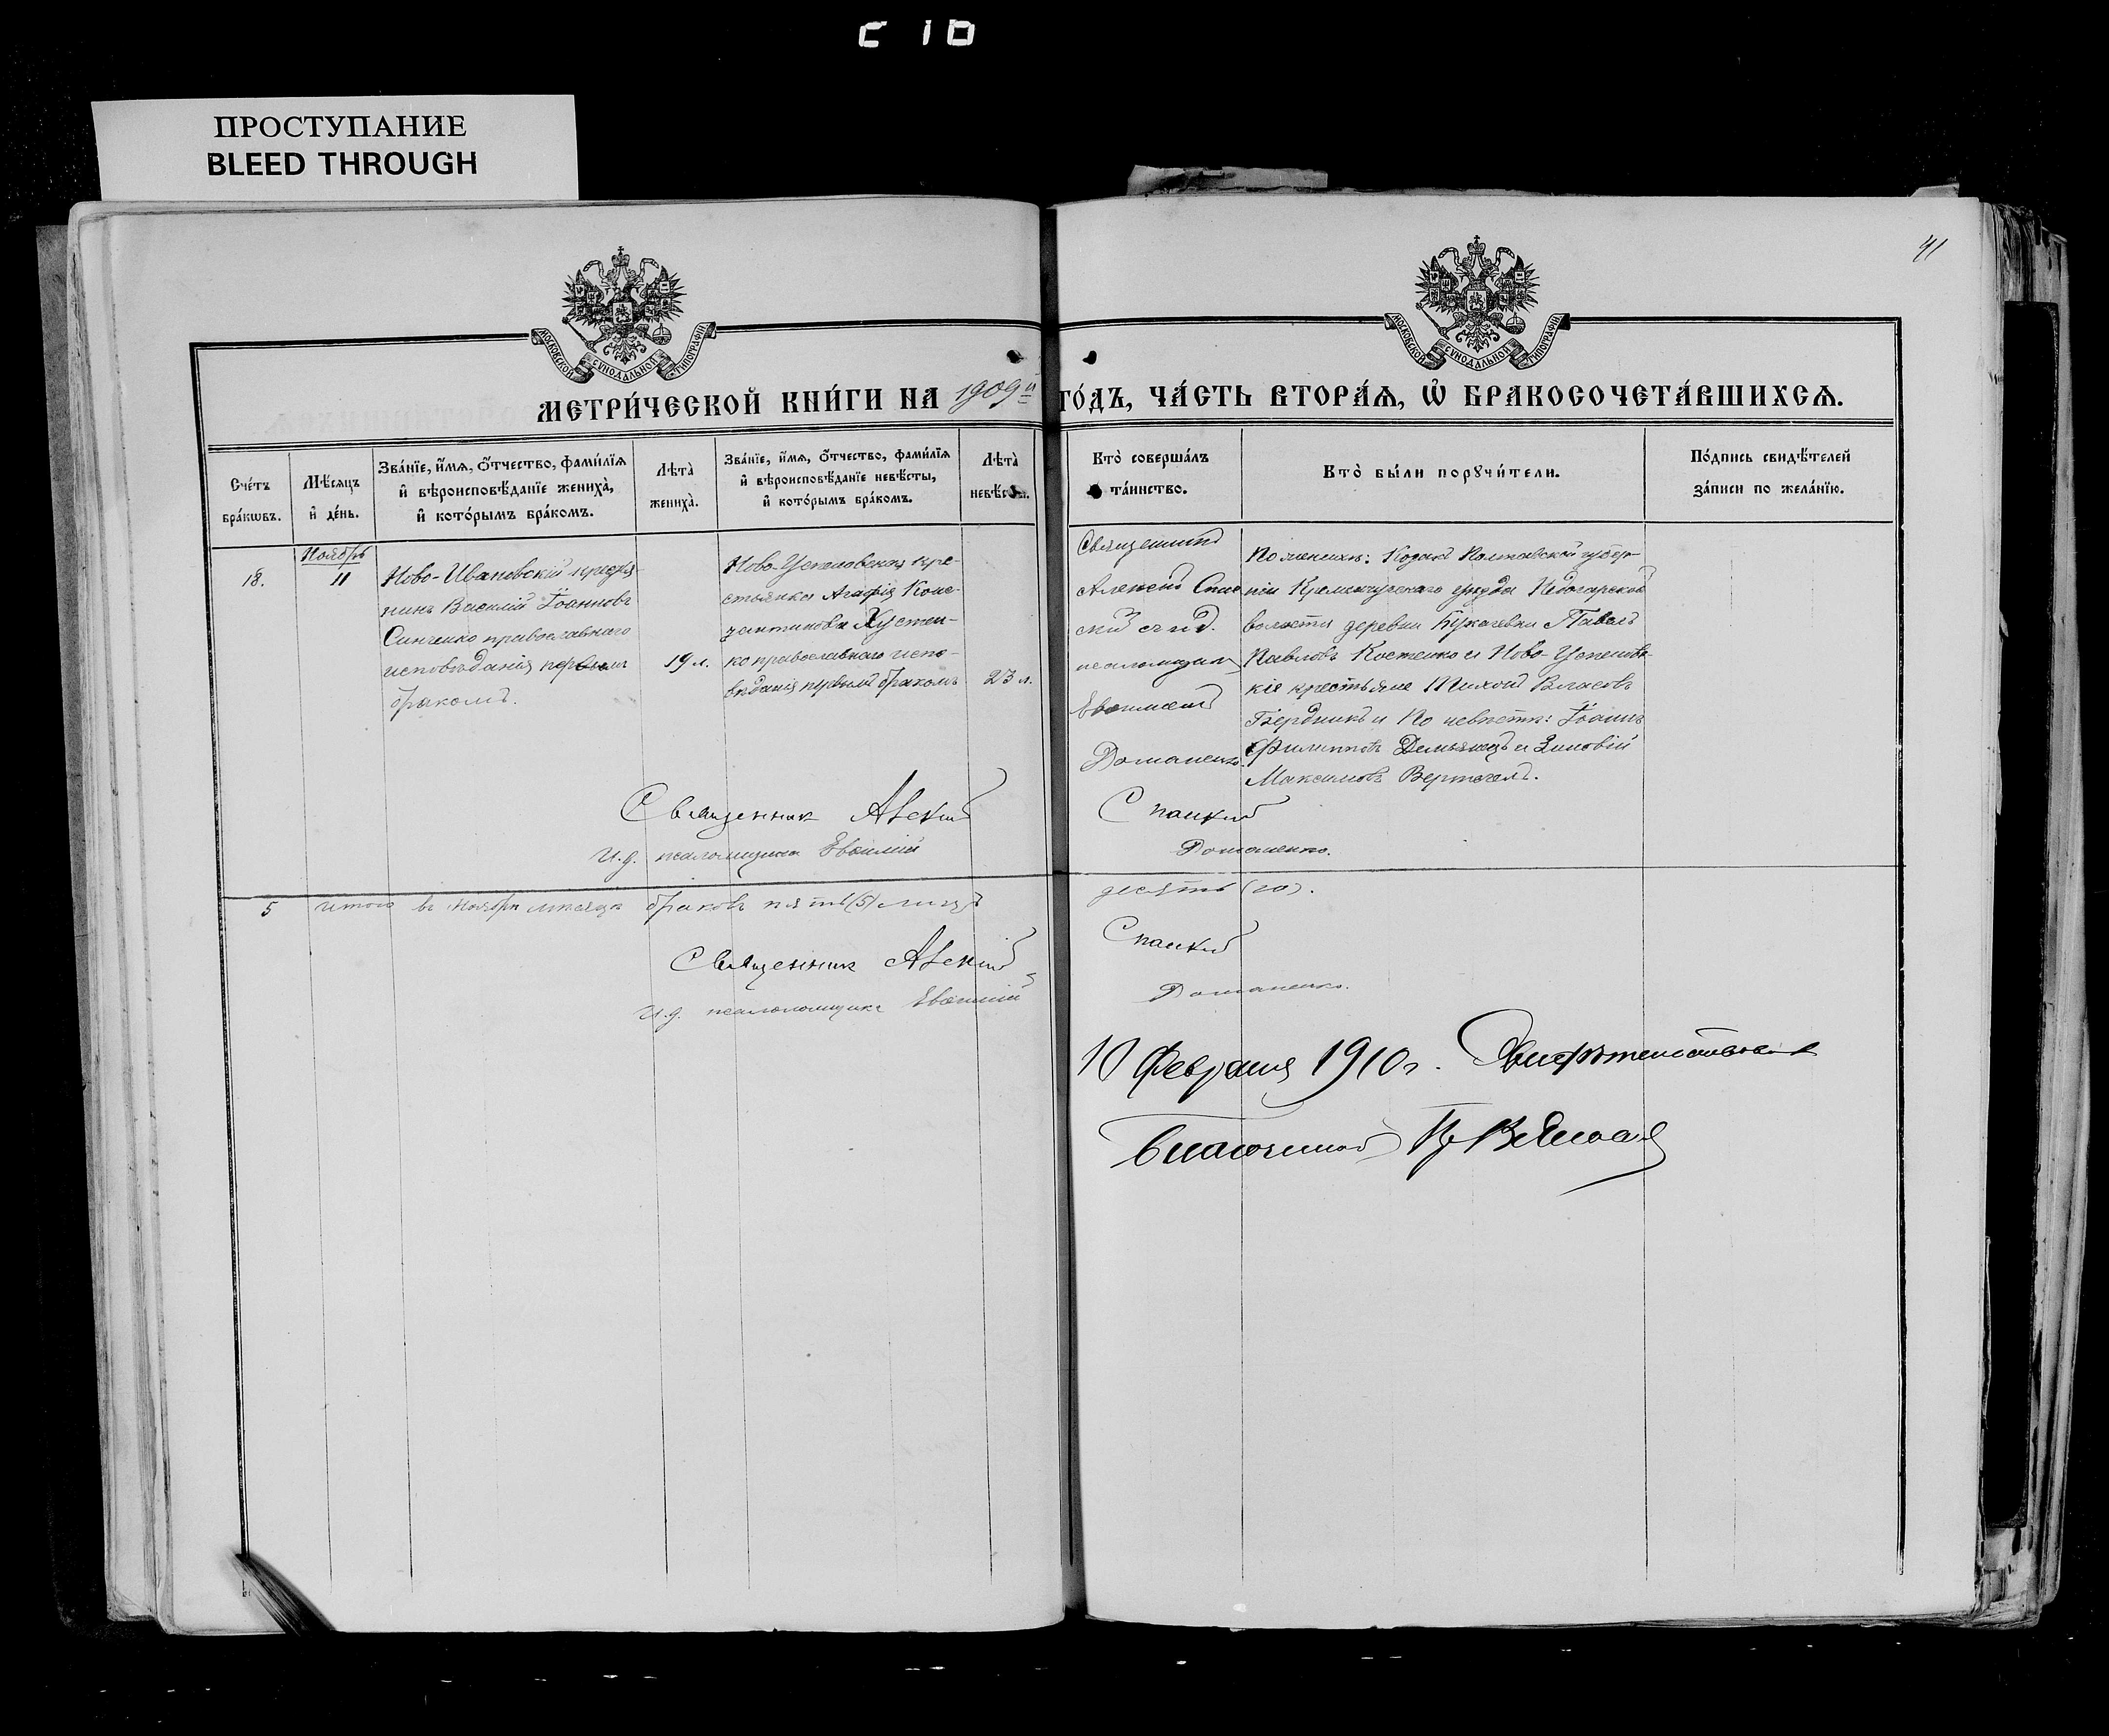 C 10
ПРОСТУПАНИЕ
BLEED THROUGH
41
МОСКОВСКОЙ СѴНОДАЛЬНОЙ ТИПОГРАФІИ
МОСКОВСКОЙ СѴНОДАЛЬНОЙ ТИПОГРАФІИ
МЕТРИ́ЧЕСКОЙ КНИ́ГИ НА 1909й ГО́ДЪ, ЧА́СТЬ ВТОРА́Ѧ, Ѡ҆ БРАКОСОЧЕТА́ВШИХСѦ.
Сче́тъ
бра́кѡвъ.
Мѣ́сяцъ
и҆ де́нь.
Зва́нїе, и҆́мѧ, ѻ҆́тчество, фами́лїѧ
и҆ вѣроисповѣ́данїе жениха̀,
и҆ кото́рымъ бра́комъ.
Лѣта̀
жениха̀.
Зва́нїе, и҆́мѧ, ѻ҆́тчество, фами́лїѧ
и҆ вѣроисповѣ́данїе невѣ́сты,
и҆ кото́рымъ бра́комъ.
Лѣта̀
невѣ́сты.
Кто̀ соверша́лъ
та́инство.
Кто̀ бы́ли порꙋчи́тели.
По́дпись свидѣ́телей
за́писи по жела́нїю.
18.
Ноябрь
11
Ново-Ивановскій
Василій Іоанновъ
Синченко православнаго
исповѣданія первымъ
бракомъ.
19 л.
Ново-Успеновская кре-
стьянка Агафія Конс-
тантинова Хустен-
ко православнаго испо-
вѣданія первымъ бракомъ
23 л.
Священникъ
Алексѣй Спас
скій с и.д.
псаломщика
Евѳимій
Доманенко.
По женихѣ: Козакъ Полтавской губер-
ніи Кременчугскаго уѣзда
волости деревни Павелъ
Павловъ Костенко и Ново-Успеновс-
кіе крестьяне Тихонъ Власовъ
Бердникъ и По невѣстѣ: Іоаннъ
Филипповъ Демьянецъ и Зиновій
Максимовъ Вертегелъ.
Священник Алексій Спаскій
И.д. псаломщика Евѳимій Доманенко.
5 Итого въ Ноябрѣ мѣсяцѣ браковъ пять (5) лицъ десять (10).
Священник Алексій Спаскій
И.д. псаломщика Евѳимій Доманенко.
10 Февраля 1910 г. Свидѣтельствовалъ
Благочинный